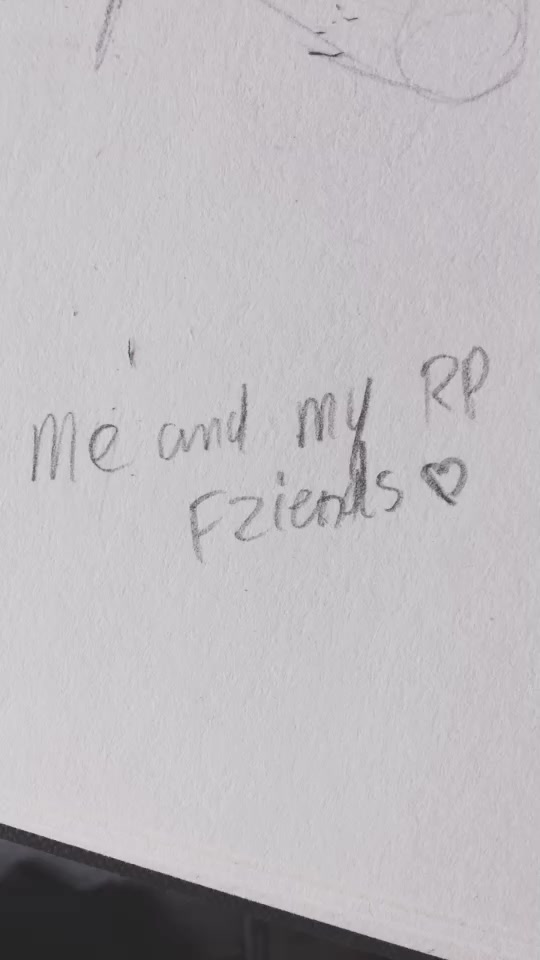 Me and my RP
Friends ♡